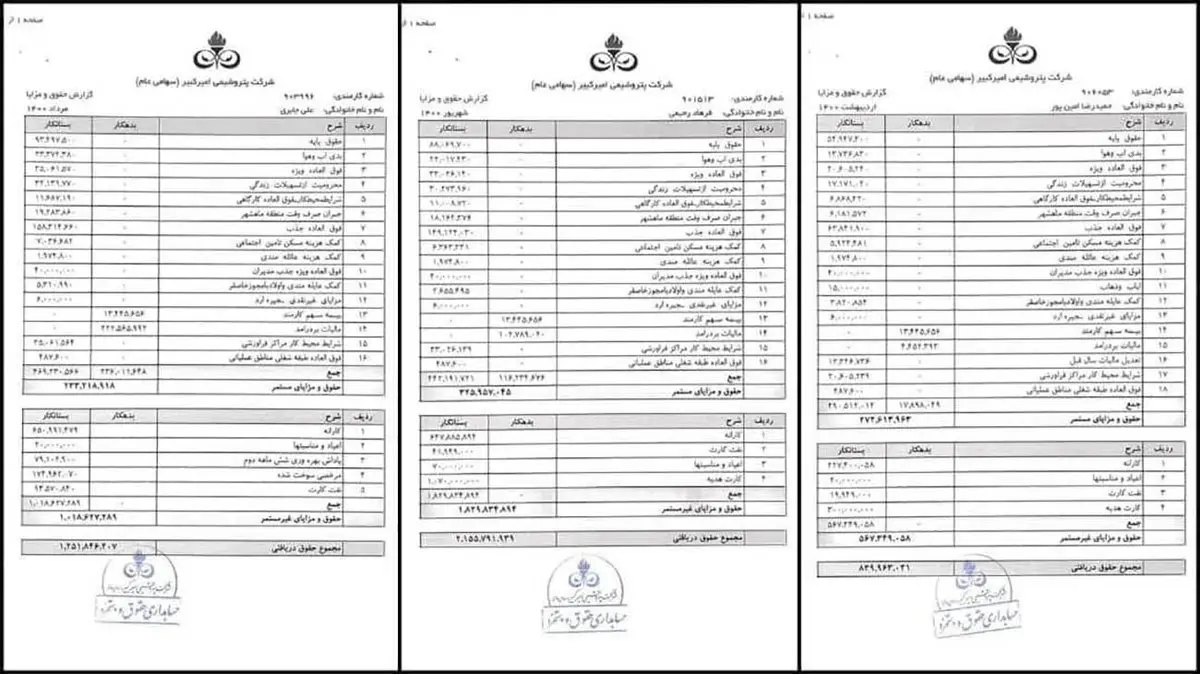 صفحه ۱ از
شرکت پتروشیمی امیرکبیر (سهامی عام)
شماره کارمندی: ۹۰۳۹۹۶ گزارش حقوق و مزایا
نام و نام خانوادگی: علی جابری مرداد ۱۴۰۰
ردیف شرح بدهکار بستانکار
۱ حقوق پایه - ۹۳,۴۹۷,۵۰۰
۲ بدی اب وهوا - ۲۳,۳۷۴,۳۸۰
۳ فوق العاده ویژه - ۳۵,۰۶۱,۵۷۰
۴ محرومیت ازتسهیلات زندگی - ۳۲,۱۳۹,۷۷۰
۵ شرایط‌محیط‌کار‌ـفوق العاده کارگاهی - ۱۱,۶۸۷,۱۹۰
۶ جبران صرف وقت منطقه ماهشهر - ۱۹,۲۸۳,۸۶۰
۷ فوق العاده جذب - ۱۵۸,۳۱۴,۶۶۰
۸ کمک هزینه مسکن تامین اجتماعی - ۷,۰۳۶,۶۸۲
۹ کمک هزینه عائله مندی - ۱,۹۷۴,۸۰۰
۱۰ فوق العاده ویژه جذب مدیران - ۴۰,۰۰۰,۰۰۰
۱۱ کمک عایله مندی واولادبامجوزخاصفر - ۵,۳۱۰,۹۹۰
۱۲ مزایای غیرنقدی ـجیره ارد - ۶,۰۰۰,۰۰۰
۱۳ بیسمه سهم کارمند ۱۳,۴۴۵,۶۵۶ -
۱۴ مالیات بردرامد ۲۲۲,۵۶۵,۹۹۲ -
۱۵ شرایط محیط کار مراکز فراورشی - ۳۵,۰۶۱,۵۶۴
۱۶ فوق العاده طبقه شغلی مناطق عملیاتی - ۴۸۷,۶۰۰
جمع ۲۳۶,۰۱۱,۶۴۸ ۴۶۹,۲۳۰,۵۶۶
حقوق و مزایای مستمر ۲۳۳,۲۱۸,۹۱۸
ردیف شرح بدهکار بستانکار
۱ کارانه ۶۵۰,۹۹۱,۴۷۹
۲ اعیاد و مناسبتها ۲۰,۰۰۰,۰۰۰
۳ پاداش بهره وری شش ماهه دوم ۷۹,۱۰۲,۹۰۰
۴ مرخصی سوخت شده ۱۷۴,۹۶۲,۰۷۰
۵ نفت کارت ۹۳,۵۷۰,۸۴۰
جمع - ۱,۰۱۸,۶۲۷,۲۸۹
حقوق و مزایای غیرمستمر ۱,۰۱۸,۶۲۷,۲۸۹
مجموع حقوق دریافتی ۱,۲۵۱,۸۴۶,۲۰۷
حسابداری حقوق و دستمزد
صفحه ۱ از
شرکت پتروشیمی امیرکبیر (سهامی عام)
شماره کارمندی: ۹۰۱۵۱۳ گزارش حقوق و مزایا
نام و نام خانوادگی: فرهاد رحیمی شهریور ۱۴۰۰
ردیف شرح بدهکار بستانکار
۱ حقوق پایه - ۸۸,۰۶۹,۷۰۰
۲ بدی اب وهوا - ۲۲,۰۱۷,۴۳۰
۳ فوق العاده ویژه - ۳۳,۰۲۶,۱۴۰
۴ محرومیت ازتسهیلات زندگی - ۳۰,۲۷۳,۹۶۰
۵ شرایط‌محیط‌کار‌ـفوق العاده کارگاهی - ۱۱,۰۰۸,۷۲۰
۶ جبران صرف وقت منطقه ماهشهر - ۱۸,۱۶۴,۳۷۴
۷ فوق العاده جذب - ۱۴۹,۱۲۴,۰۳۰
۸ کمک هزینه مسکن تامین اجتماعی - ۶,۳۶۳,۲۳۱
۹ کمک هزینه عائله مندی - ۱,۹۷۴,۸۰۰
۱۰ فوق العاده ویژه جذب مدیران - ۴۰,۰۰۰,۰۰۰
۱۱ کمک عایله مندی واولادبامجوزخاصفر - ۲,۶۵۵,۴۹۵
۱۲ مزایای غیرنقدی ـجیره ارد - ۶,۰۰۰,۰۰۰
۱۳ بیسمه سهم کارمند ۱۳,۴۴۵,۶۵۶ -
۱۴ مالیات بردرامد ۱۰۲,۷۸۹,۰۲۰ -
۱۵ شرایط محیط کار مراکز فراورشی - ۳۳,۰۲۶,۱۳۹
۱۶ فوق العاده طبقه شغلی مناطق عملیاتی - ۴۸۷,۶۰۰
جمع ۱۱۶,۲۳۴,۶۷۶ ۴۴۲,۱۹۱,۷۲۱
حقوق و مزایای مستمر ۳۲۵,۹۵۷,۰۴۵
ردیف شرح بدهکار بستانکار
۱ کارانه ۶۴۷,۸۸۵,۸۹۴
۲ نفت کارت ۴۱,۹۴۹,۰۰۰
۳ اعیاد و مناسبتها ۷۰,۰۰۰,۰۰۰
۴ کارت هدیه ۱,۰۷۰,۰۰۰,۰۰۰
جمع - ۱,۸۲۹,۸۳۴,۸۹۴
حقوق و مزایای غیرمستمر ۱,۸۲۹,۸۳۴,۸۹۴
مجموع حقوق دریافتی ۲,۱۵۵,۷۹۱,۹۳۹
حسابداری حقوق و دستمزد
صفحه ۱ از
شرکت پتروشیمی امیرکبیر (سهامی عام)
شماره کارمندی: ۹۰۶۰۵۳ گزارش حقوق و مزایا
نام و نام خانوادگی: حمیدرضا امین پور اردیبهشت ۱۴۰۰
ردیف شرح بدهکار بستانکار
۱ حقوق پایه - ۵۴,۹۴۷,۳۰۰
۲ بدی اب وهوا - ۱۳,۷۳۶,۸۳۰
۳ فوق العاده ویژه - ۲۰,۶۰۵,۲۴۰
۴ محرومیت ازتسهیلات زندگی - ۱۷,۱۷۱,۰۲۰
۵ شرایط‌محیط‌کار‌ـفوق العاده کارگاهی - ۶,۸۶۸,۴۲۰
۶ جبران صرف وقت منطقه ماهشهر - ۶,۱۸۱,۵۷۲
۷ فوق العاده جذب - ۶۳,۸۴۱,۹۰۰
۸ کمک هزینه مسکن تامین اجتماعی - ۵,۹۲۴,۴۸۱
۹ کمک هزینه عائله مندی - ۱,۹۷۴,۸۰۰
۱۰ فوق العاده ویژه جذب مدیران - ۴۰,۰۰۰,۰۰۰
۱۱ ایاب وذهاب - ۱۵,۰۰۰,۰۰۰
۱۲ کمک عایله مندی واولادبامجوزخاصفر - ۳,۸۲۰,۸۵۴
۱۳ مزایای غیرنقدی ـجیره ارد - ۶,۰۰۰,۰۰۰
۱۴ بیسمه سهم کارمند ۱۳,۴۴۵,۶۵۶ -
۱۵ مالیات بردرامد ۴,۴۵۲,۳۹۳ -
۱۶ تعدیل مالیات سال قبل - ۱۳,۳۴۶,۷۳۶
۱۷ شرایط محیط کار مراکز فراورشی - ۲۰,۶۰۵,۲۳۹
۱۸ فوق العاده طبقه شغلی مناطق عملیاتی - ۴۸۷,۶۰۰
جمع ۱۷,۸۹۸,۰۴۹ ۲۹۰,۵۱۲,۰۱۲
حقوق و مزایای مستمر ۲۷۲,۶۱۳,۹۶۳
ردیف شرح بدهکار بستانکار
۱ کارانه ۲۲۷,۴۰۰,۰۵۸
۲ اعیاد و مناسبتها ۲۰,۰۰۰,۰۰۰
۳ نفت کارت ۱۹,۹۴۹,۰۰۰
۴ کارت هدیه ۳۰۰,۰۰۰,۰۰۰
جمع - ۵۶۷,۳۴۹,۰۵۸
حقوق و مزایای غیرمستمر ۵۶۷,۳۴۹,۰۵۸
مجموع حقوق دریافتی ۸۳۹,۹۶۳,۰۲۱
حسابداری حقوق و دستمزد